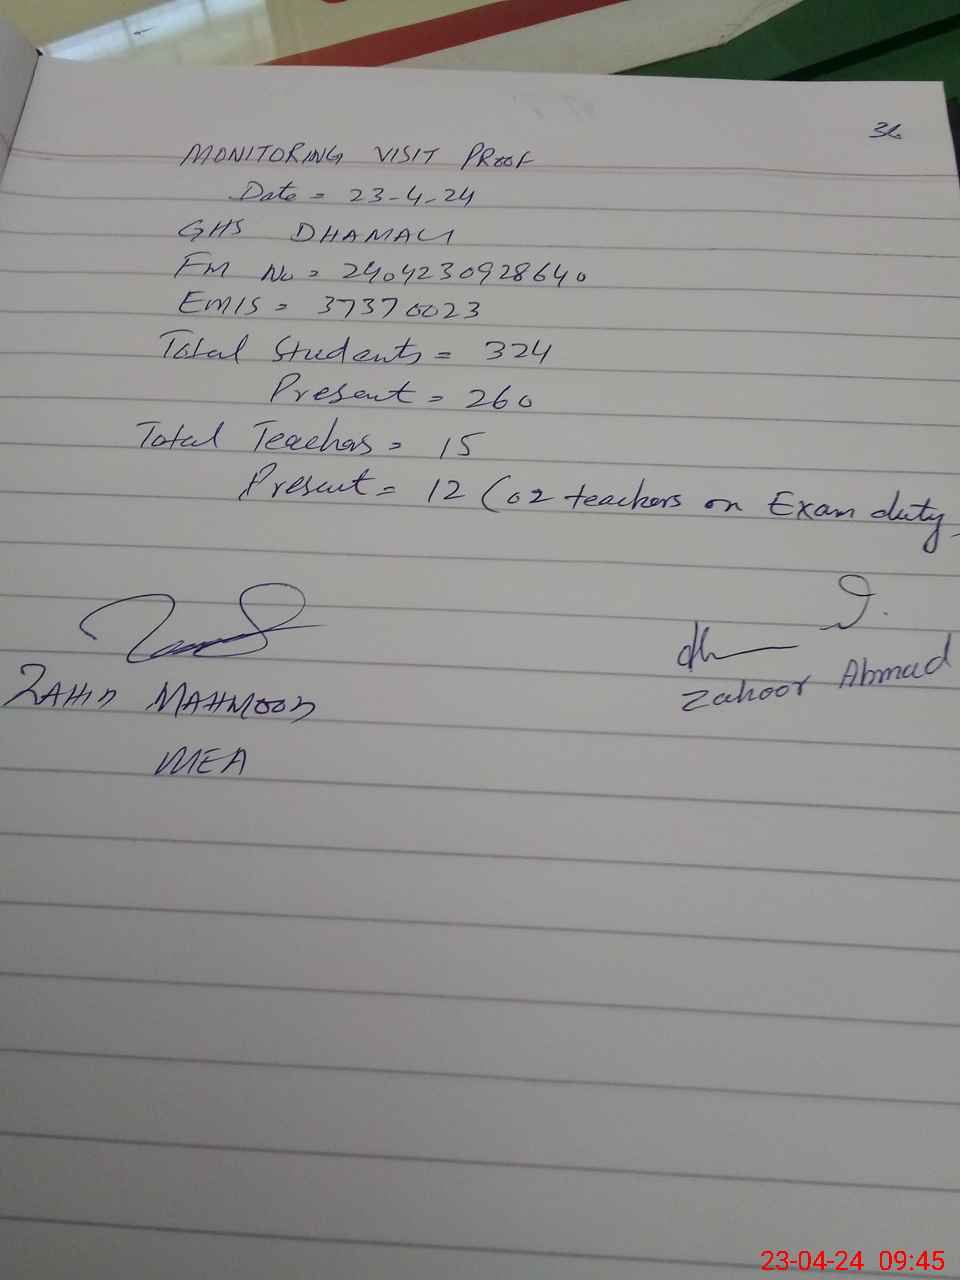 36
MONITORING VISIT PROOF
Date = 23-4-24
GHS DHAMALI
FM No = 2404230928640
EMIS = 37370023
Total Students = 324
Present = 260
Total Teachers = 15
Present = 12 (02 teachers on Exam duty
ZAHID MAHMOOD
MEA
Zahoor Ahmad
23-04-24 09:45